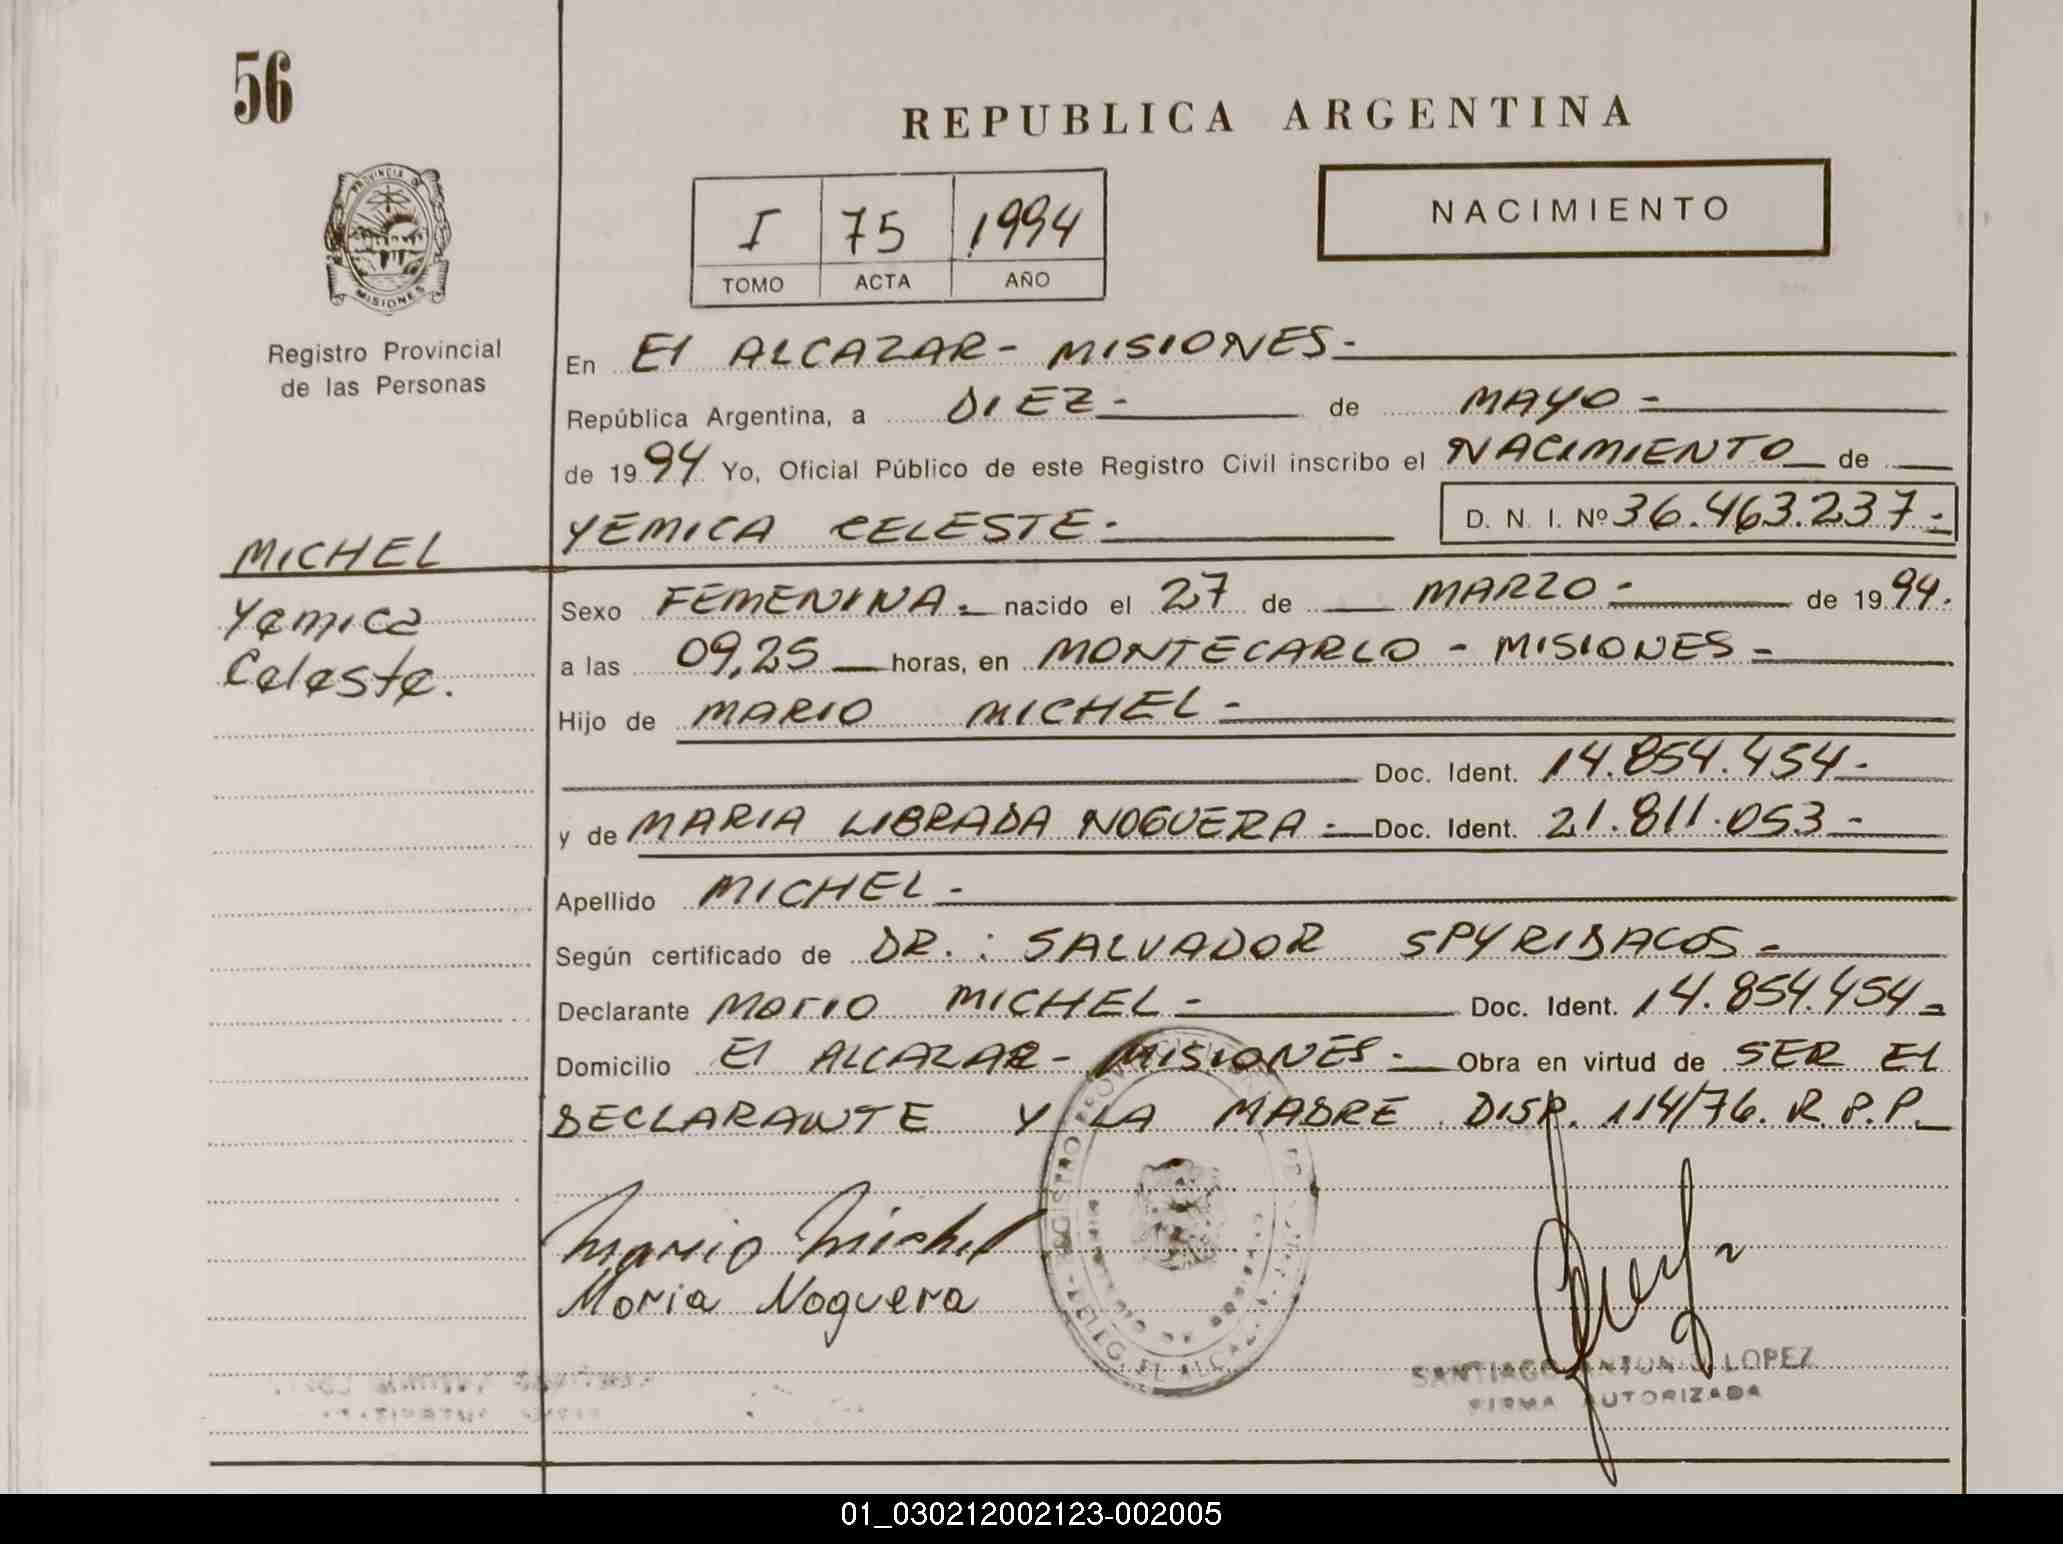 56
REPUBLICA ARGENTINA
PROVINCIA DE
MISIONES
Registro Provincial
de las Personas
I 75 1994
TOMO ACTA AÑO
NACIMIENTO
En El ALCAZAR - MISIONES.-
República Argentina, a DIEZ.- de MAYO -
de 1994 Yo, Oficial Público de este Registro Civil inscribo el NACIMIENTO de
YEMICA CELESTE.- D. N. I. Nº 36.463.237.-
MICHEL
Yemica
Celeste.
Sexo FEMENINA.- nacido el 27 de MARZO.- de 1994.
a las 09,25 horas, en MONTECARLO - MISIONES -
Hijo de MARIO MICHEL -
Doc. Ident. 14.854.454.-
y de MARIA LIBRADA NOGUERA.- Doc. Ident. 21.811.053.-
Apellido MICHEL -
Según certificado de DR.: SALVADOR SPYRIDACOS -
Declarante Mario MICHEL - Doc. Ident. 14.854.454 -
Domicilio El ALCAZAR - MISIONES.- Obra en virtud de SER El
DECLARANTE Y LA MADRE DISP. 114/76. R.P.P.
Mario Michel
Maria Noguera
SANTIAGO ANTONIO LOPEZ
FIRMA AUTORIZADA
01_030212002123-002005